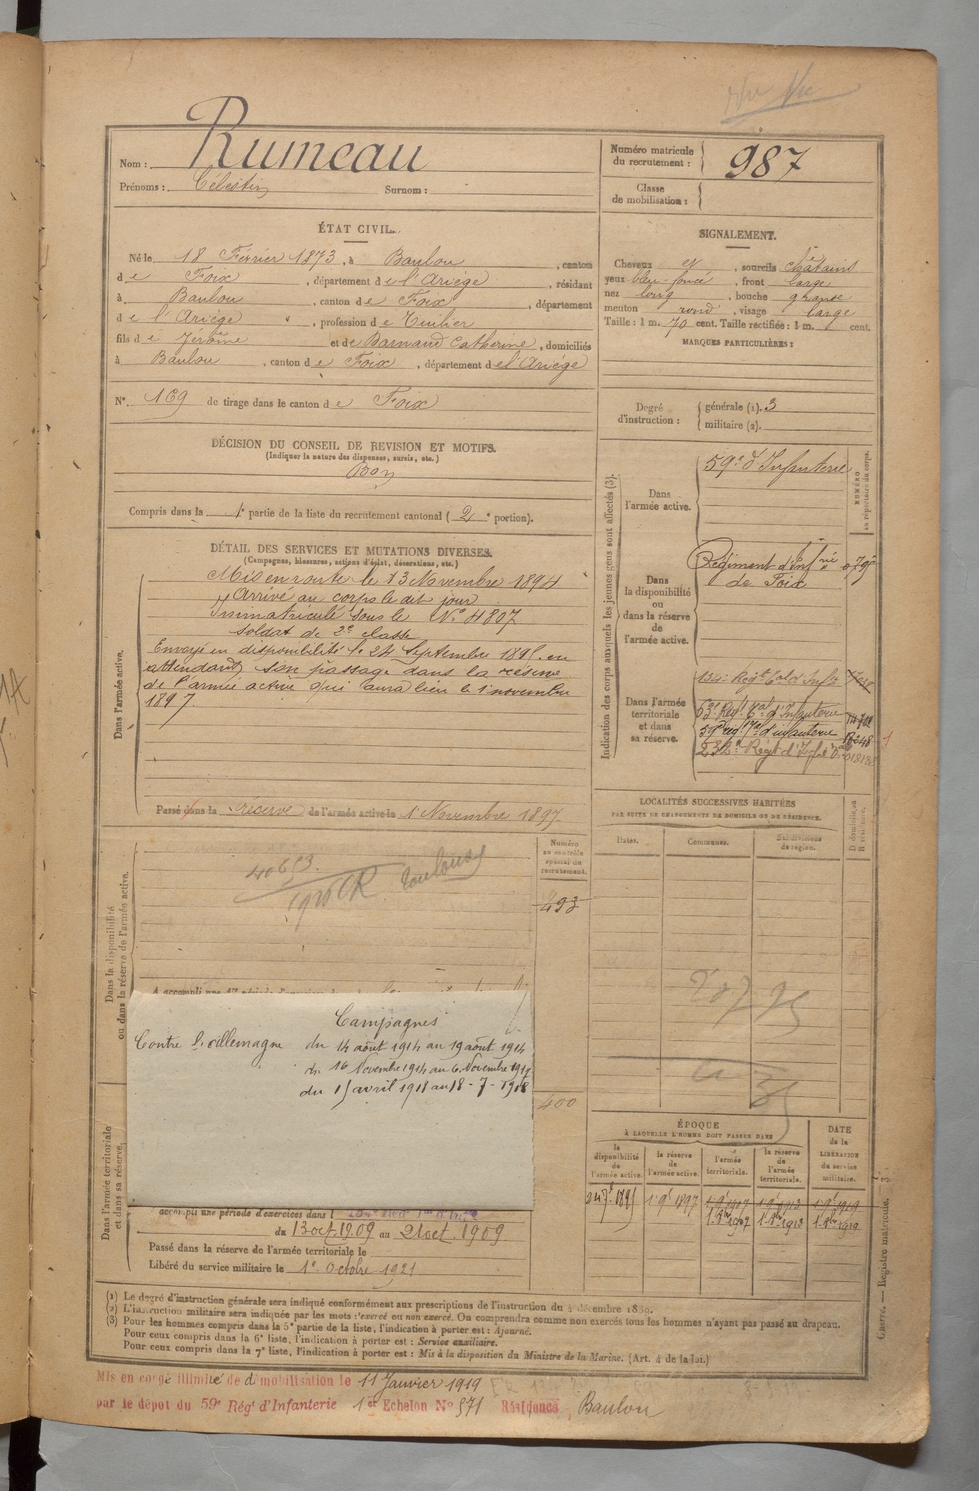 Nom : Rumeau
Prénoms : Célestin Surnom :
Numéro matricule
du recrutement : 987
Classe
de mobilisation :
ÉTAT CIVIL.
Né le 18 Février 1873, à Baulou, canton
de Foix, département de l'Ariège, résidant
à Baulou, canton de Foix, département
de l'Ariège, profession de Tuilier
fils de Jérôme et de Barnaud Catherine, domiciliés
à Baulou, canton de Foix, département de l'Ariège
N° 169 de tirage dans le canton de Foix
SIGNALEMENT.
Cheveux et, sourcils châtains
yeux bleu-foncé, front large
nez long, bouche grande
menton rond, visage large
Taille : 1 m. 70 cent. Taille rectifiée : 1 m. cent.
MARQUES PARTICULIÈRES :
Degré
d'instruction :
générale (1). 3
militaire (2).
DÉCISION DU CONSEIL DE REVISION ET MOTIFS.
(Indiquer la nature des dispenses, sursis, etc.)
Bon
Compris dans la 1e partie de la liste du recrutement cantonal (2e portion).
DÉTAIL DES SERVICES ET MUTATIONS DIVERSES.
(Campagnes, blessures, actions d'éclat, décorations, etc.)
Dans l'armée active.
Mis en route le 13 Novembre 1894
Arrivé au corps le dit jour
Immatriculé sous le N° 4807
Soldat de 2e classe
Envoyé en disponibilité le 24 Septembre 1895 en
attendant son passage dans la réserve
de l'armée active qui aura lieu le 1 novembre
1897
Passé dans la réserve de l'armée active le 1 Novembre 1897
Indication des corps auxquels les jeunes gens sont affectés (3).
NUMÉRO
au répertoire du corps.
Dans
l'armée active.
59e d'Infanterie
Dans
la disponibilité
ou
dans la réserve
de
l'armée active.
Régiment d'Infrie
de Foix
Dans l'armée
territoriale
et dans
sa réserve.
63e Regt d'Infanterie
59e reg d'infanterie
LOCALITÉS SUCCESSIVES HABITÉES
PAR SUITE DE CHANGEMENTS DE DOMICILE OU DE RÉSIDENCE.
Dates.
Communes.
Subdivisions
de région.
D domicile, ou
R résidence.
Dans la disponibilité
ou dans la réserve de l'armée active.
Toulouse
Numéro
au contrôle
spécial du
recrutement.
493
Campagnes
Contre l'Allemagne du 14 août 1914 au 19 août 1914
du 16 Novembre 1914 au 6 Novembre 1917
du 15 avril 1918 au 18-7-1918
400
Dans l'armée territoriale
et dans sa réserve.
accompli une période d'exercices dans l
du 13 oct. 1909 au 21 oct. 1909
Passé dans la réserve de l'armée territoriale le
Libéré du service militaire le 1e Octobre 1921
ÉPOQUE
À LAQUELLE L'HOMME DOIT PASSER DANS
DATE
de la
LIBÉRATION
du service
militaire.
la
disponibilité
de
l'armée active.
la réserve
de
l'armée active.
l'armée
territoriale.
la réserve
de
l'armée
territoriale.
24 7e 1895
(1) Le degré d'instruction générale sera indiqué conformément aux prescriptions de l'instruction du 4 décembre 1889.
(2) L'instruction militaire sera indiquée par les mots : exercé ou non exercé. On comprendra comme non exercés tous les hommes n'ayant pas passé au drapeau.
(3) Pour les hommes compris dans la 5e partie de la liste, l'indication à porter est : Ajourné.
Pour ceux compris dans la 6e liste, l'indication à porter est : Service auxiliaire.
Pour ceux compris dans la 7e liste, l'indication à porter est : Mis à la disposition du Ministre de la Marine. (Art. 4 de la loi.)
Guerre. — Registre matricule.
Mis en congé illimité de démobilisation le 11 Janvier 1919
par le dépôt du 59e Régt d'Infanterie 1er Echelon N° 571 Résidence, Baulou